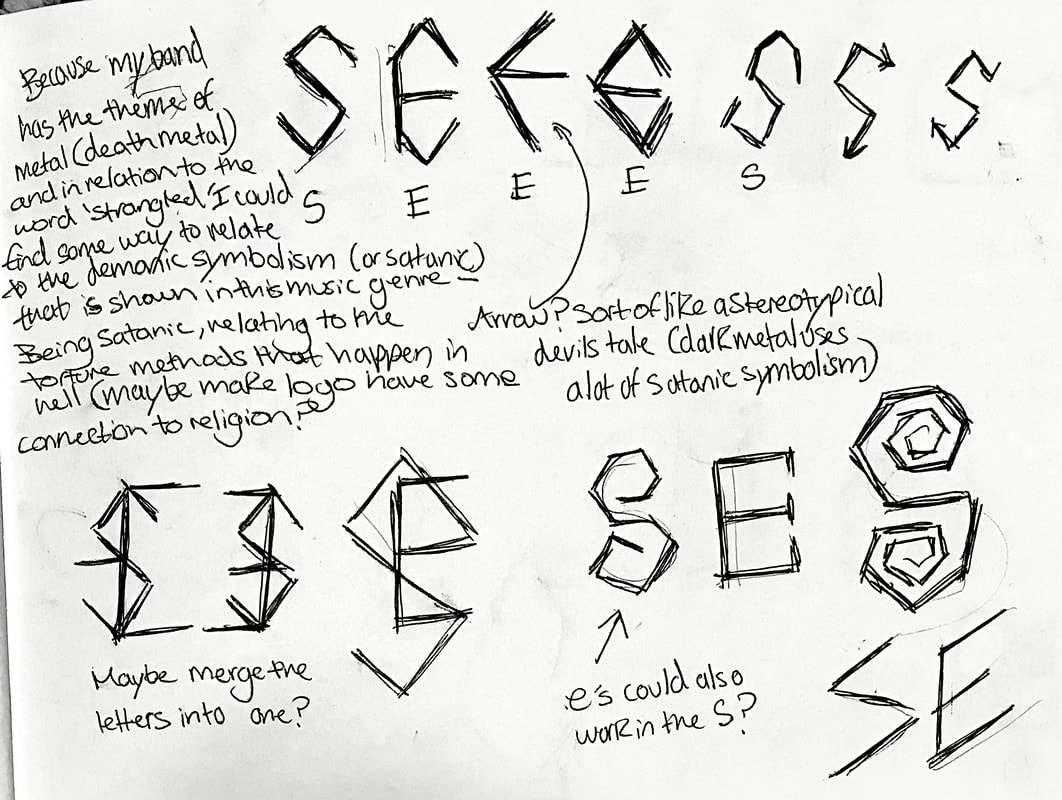 Because my band
has the themes of
metal (death metal)
and in relation to the
word 'strangled' I could
find some way to relate
to the demonic symbolism (or satanic)
that is shown in this music genre -
Being Satanic, relating to the
torture methods that happen in
hell (maybe make logo have some
connection to religion?)
S E E E S S S
S E E E S
Arrow? sort of like a stereotypical
devils tale (dark metal uses
a lot of satanic symbolism)
Maybe merge the
letters into one?
S E S
e's could also
work in the S?
SE